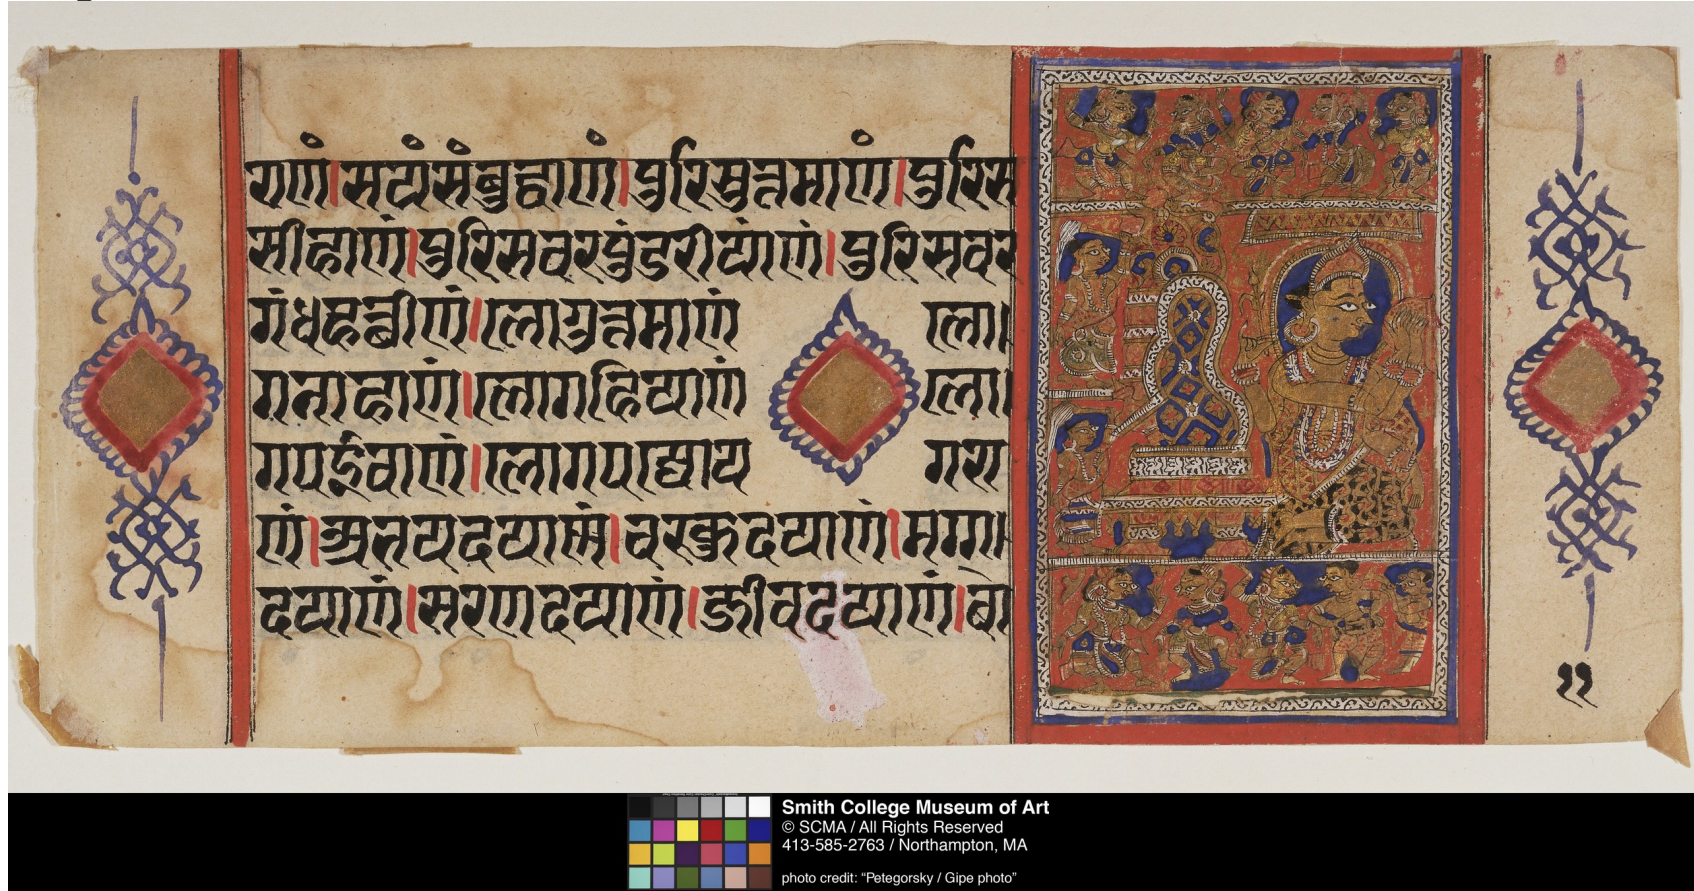 राणं।सयंसंबुद्धाणं।पुरिसुत्तमाणं।पुरिस
सीहाणं।पुरिसवरपुंडरीयाणं।पुरिसवर
गंधहत्थीणं।लोगुत्तमाणं लो
गनाहाणं।लोगहियाणं लो
गपईवाणं।लोगपज्जोय गरा
णं।अभयदयाणं।चक्खुदयाणं।मग्ग
दयाणं।सरणदयाणं।जीवदयाणं।बो
११
Smith College Museum of Art
© SCMA / All Rights Reserved
413-585-2763 / Northampton, MA
photo credit: “Petegorsky / Gipe photo”